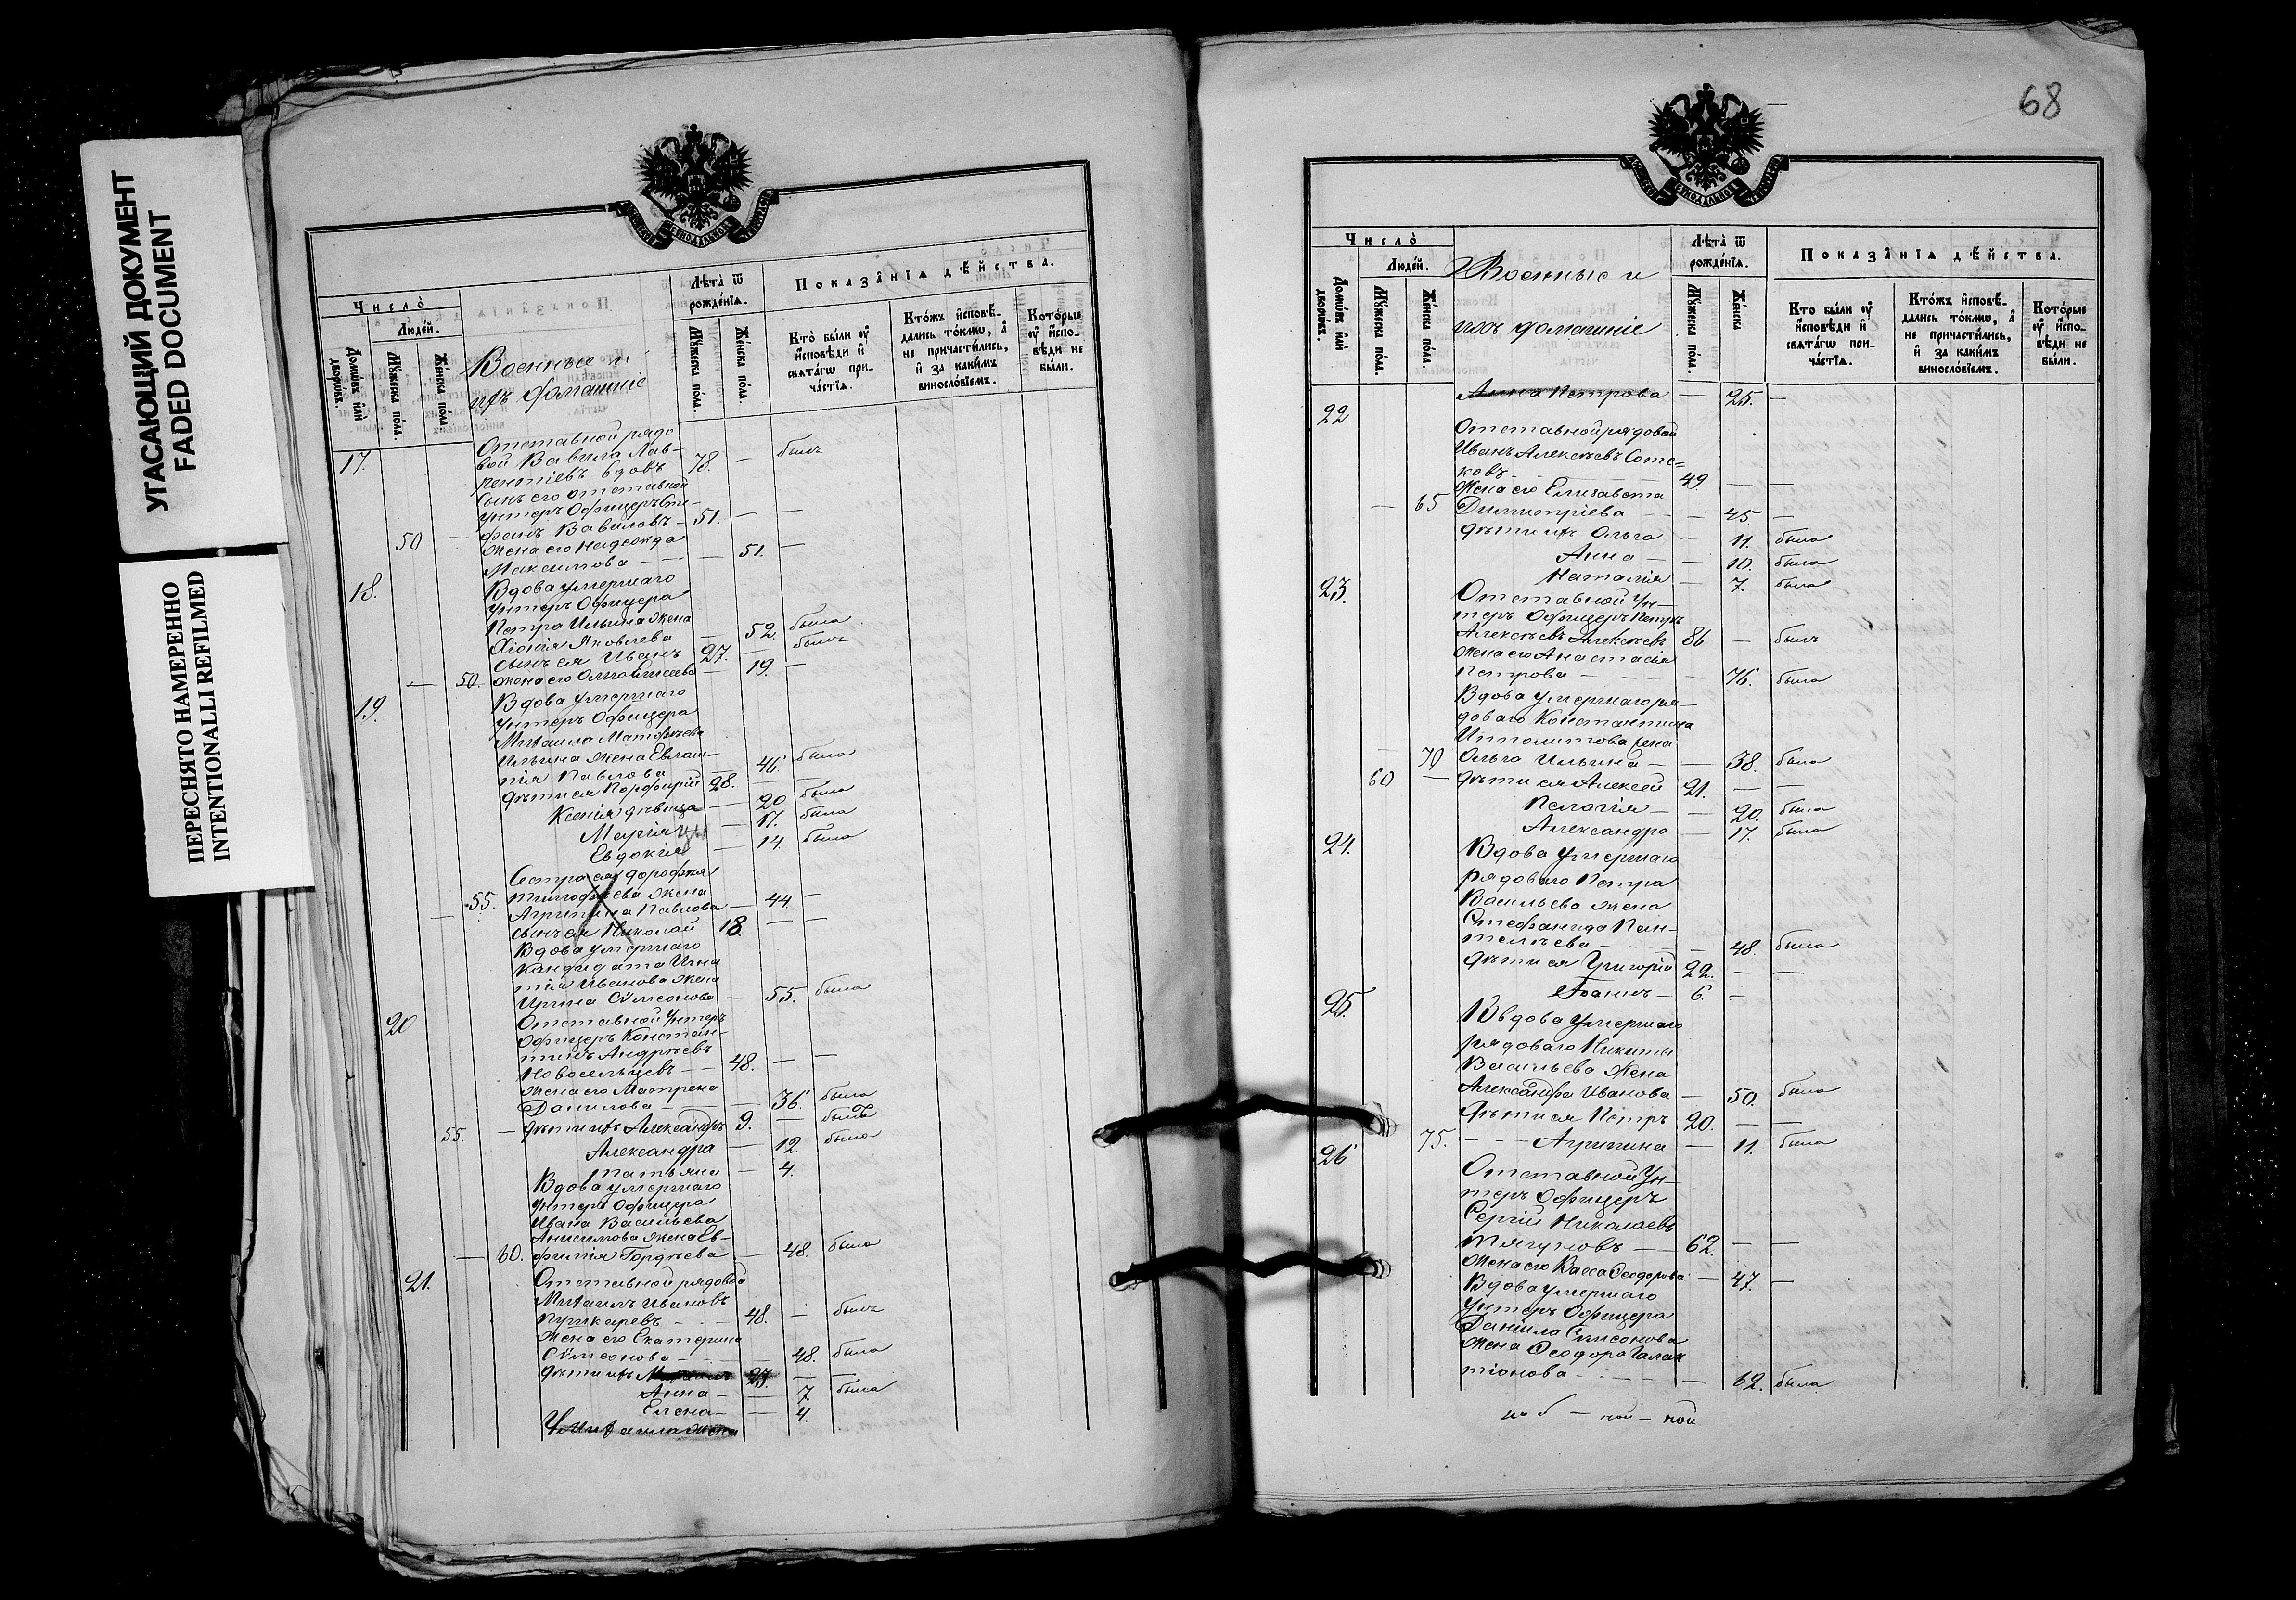 УГАСАЮЩИЙ ДОКУМЕНТ
FADED DOCUMENT
ПЕРЕСНЯТО НАМЕРЕННО
INTENTIONALLI REFILMED
Число̀
Людéй.
Домѡ́въ и҆лѝ дворѡ́въ.
Мꙋ́жеска по́ла.
Же́нска по́ла.
Военные и
ихъ домашніе
Лѣ́та ѿ рожде́нїѧ.
Мꙋ́жеска по́ла.
Же́нска по́ла.
Показа́нїѧ дѣ́йства.
Кто̀ бы́ли ᲂу҆ и҆сповѣ́ди и҆ свѧта́гѡ при-ча́стїѧ.
Кто́жъ и҆сповѣ́-дались то́кмѡ, а҆ не причасти́лись, и҆ за каки́мъ винослóвїемъ.
Кото́рые ᲂу҆ и҆спо-вѣ́ди не бы́ли.
17. Отставной рядо
вой Вавила Лав-
рентіевъ вдовъ 78. — былъ
Сынъ его отставной
Унтеръ Офицеръ Сте-
50 — фанъ Вавиловъ — 51. — —
Жена его Надежда
Максимова — — — 51. —
18. Вдова умершаго
Унтеръ Офицера
Петра Ильина жена
Хіонія Яковлева — 52. была
сынъ ея Иванъ 27. — былъ
— 50. жена его — 19. —
19. Вдова умершаго
Унтеръ Офицера
Михаила Матфѣева
Ильина жена Евлам-
пія Павлова — 46. была
дѣти ея Порфирій 28. — —
Ксенія дѣвица — 20. была
Марія — 17. была
Евдокія — 14. была
Сестра ея Дорофея
Тимофѣева жена
— 55. Агрипина Павлова — 44. —
сынъ ея Николай 18. — —
Вдова умершаго
кандидата Игна
тія Иванова жена
Ирина Сѷмеонова — 55. была
20 Отставной Унтеръ
Офицеръ Констан-
тинъ Андреевъ
Новосельцевъ — — 48. — —
Жена его Матрена
Данилова — — 36. была
55. — дѣти ихъ Александръ 9. — былъ
Александра — 12. была
Татьяна — 4.
Вдова умершаго
Унтеръ Офицера
Ивана Васильева
Анисимова жена Ев-
— 60. фимія Гордѣева — 48. была
21. Отставной рядовой
Михаилъ Ивановъ
Пушкаревъ — — 48. — былъ
Жена его Екатерина
Сѷмеонова — — 48. была
дѣти ихъ 23. — —
Анна — — 7. была
Елена — — 4.
Михаила жена
68
Число̀
Людéй.
Домѡ́въ и҆лѝ дворѡ́въ.
Мꙋ́жеска по́ла.
Же́нска по́ла.
Военные и
ихъ домашніе
Лѣ́та ѿ рожде́нїѧ.
Мꙋ́жеска по́ла.
Же́нска
Показа́нїѧ дѣ́йства.
Кто бы́ли ᲂу҆ и҆сповѣ́ди и҆ свѧта́гѡ при-ча́стїѧ.
Кто́жъ и҆сповѣ́-дались то́кмѡ, а҆ не причасти́лись, и҆ за каки́мъ винослóвїемъ.
Кото́рые ᲂу҆ и҆спо-вѣ́ди не бы́ли.
Анна Петрова — 25. —
22 Отставной рядовой
Иванъ Алексѣевъ Сот=
ковъ 49. — —
Жена его Елизавета
— 65 Димитріева — — — 45. —
дѣти ихъ Ольга — 11. была
Анна — — 10. была
Наталія — 7. была
23. Отставной Ун-
теръ Офицеръ Петръ
Алексѣевъ Алексѣевъ 86 — былъ
Жена его Анастасія
Петрова — — — — 76. была
Вдова умершаго ря-
доваго Константина
Ипполитова жена
— 70 Ольга Ильина — — 38. была
60 — дѣти ея Алексей 21. — —
Пелагія — — 20. была
Александра — 17. была
24. Вдова умершаго
рядоваго Петра
Васильева жена
Стефанида Пан-
телѣева — — — 48. была
дѣти ея Григорій 22. — —
Іоаннъ — 6. —
25. Вдова умершаго
рядоваго Никиты
Васильева жена
Александра Иванова — 50. была
дѣти ея Петръ 20. — —
75. — — Агрипина — 11. была
26 Отставной Ун-
теръ Офицеръ
Сергій Николаевъ
Тягуновъ — — 62. — —
Жена его Васса Ѳеодорова — 47. —
Вдова умершаго
Унтеръ Офицера
Даніила Сѷмеонова
жена Ѳеодора Галак
тіонова — — — 62. была